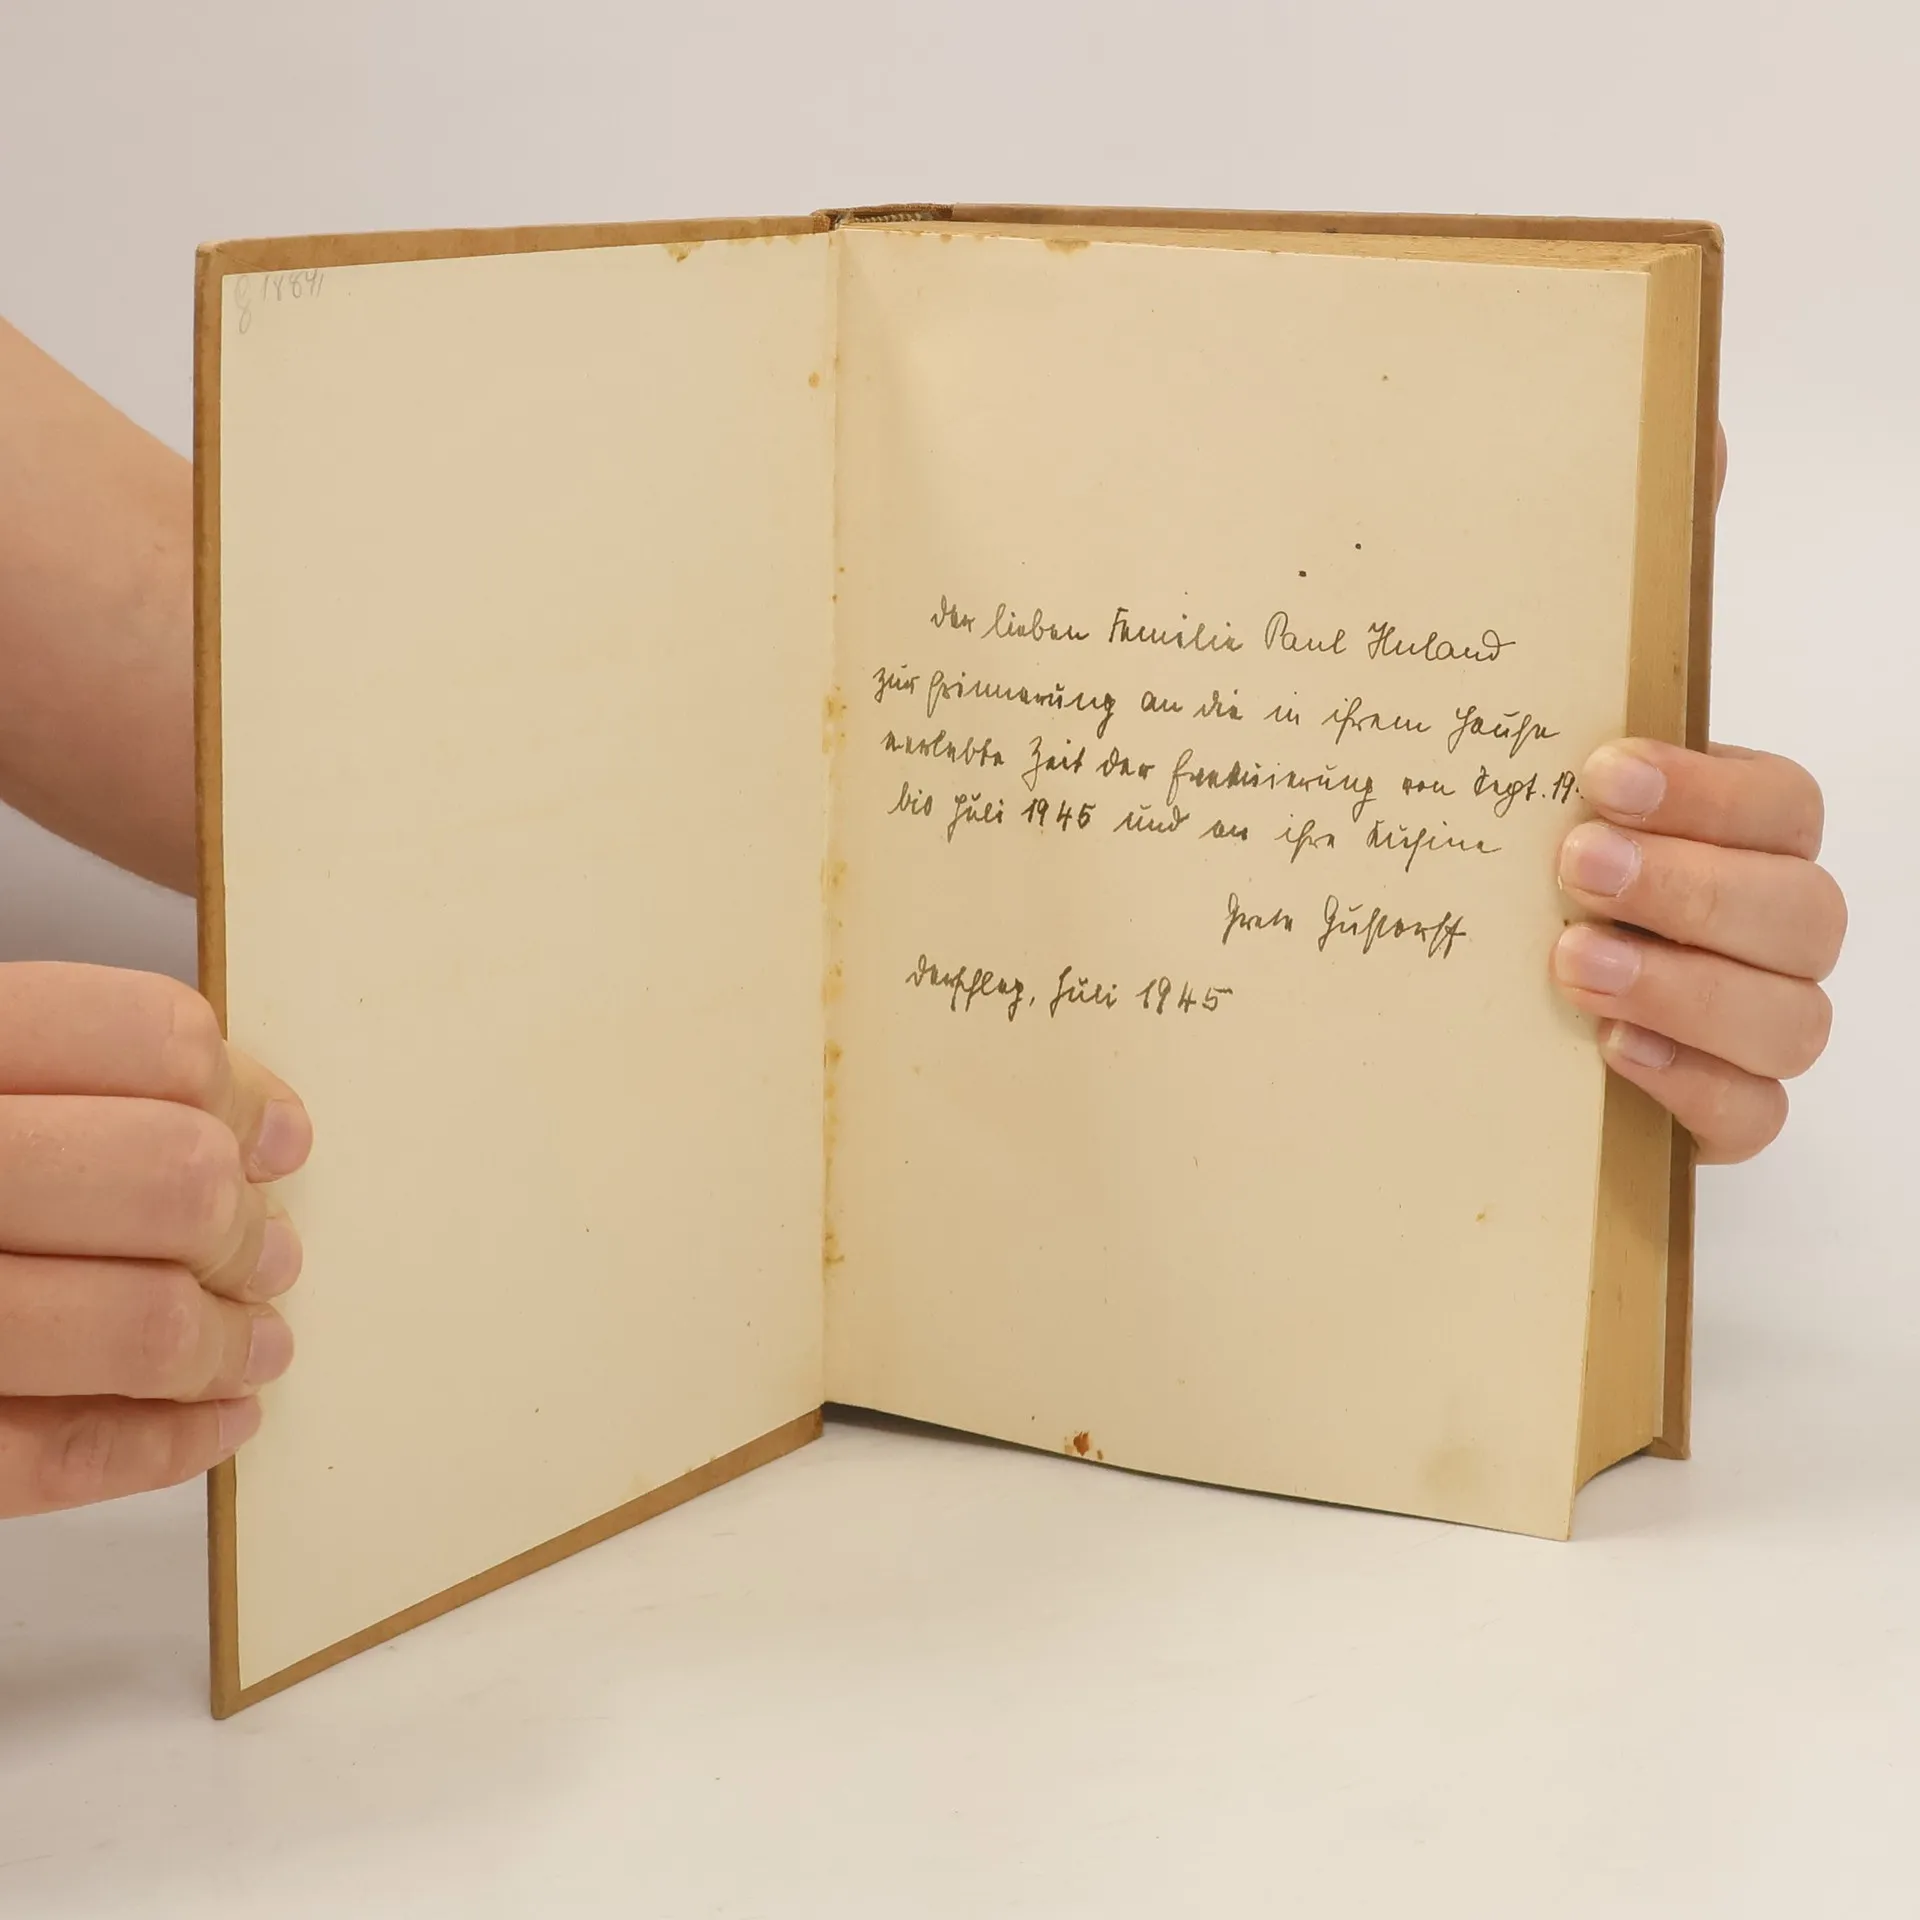 g 1884
Der lieben Familie Paul Huland
zur Erinnerung an die in ihrem Hause
verlebte Zeit der Evakuierung von Sept. 19
bis Juli 1945 und an ihre Kusine
Grete Gustorff
Derschlag, Juli 1945